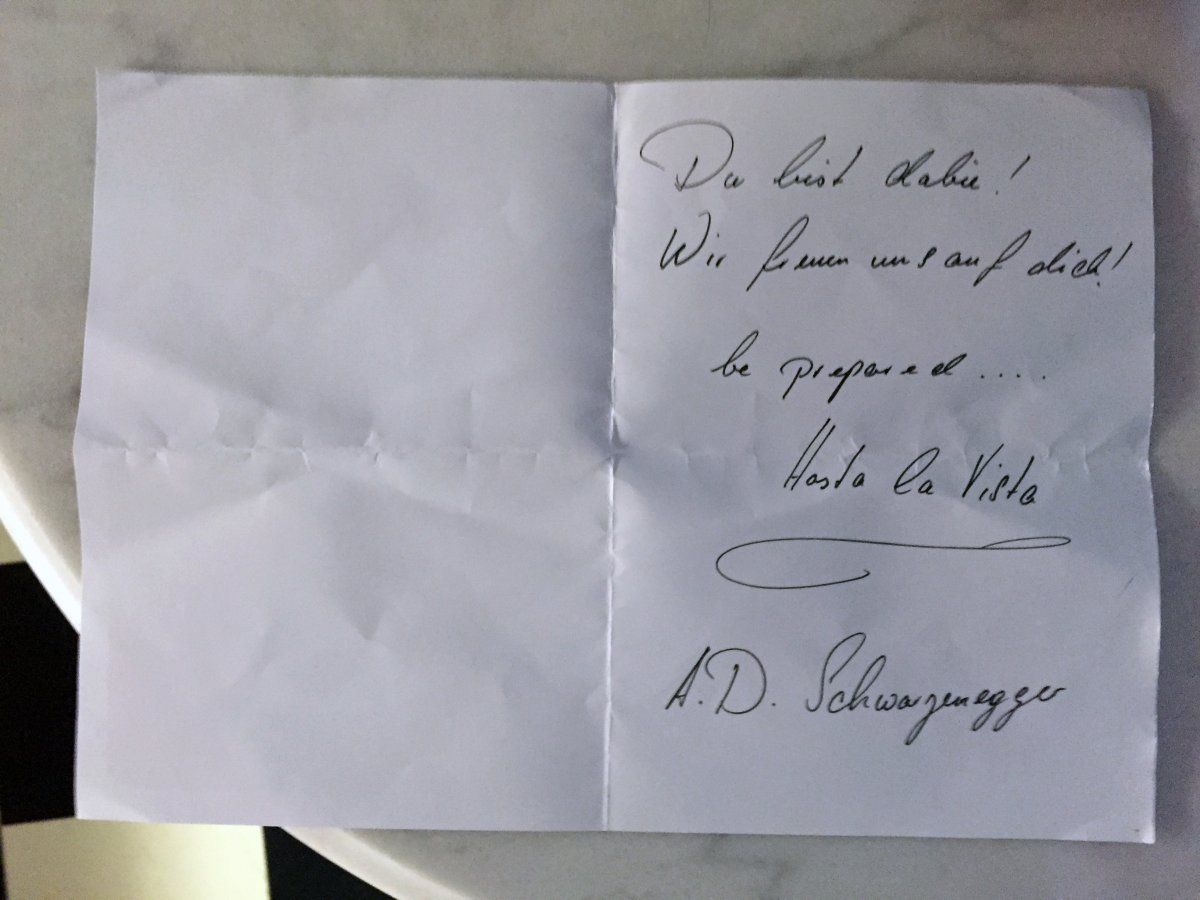 Du bist dabei!
Wir freuen uns auf dich!
be prepared ....
Hasta la Vista
A.D. Schwarzenegger